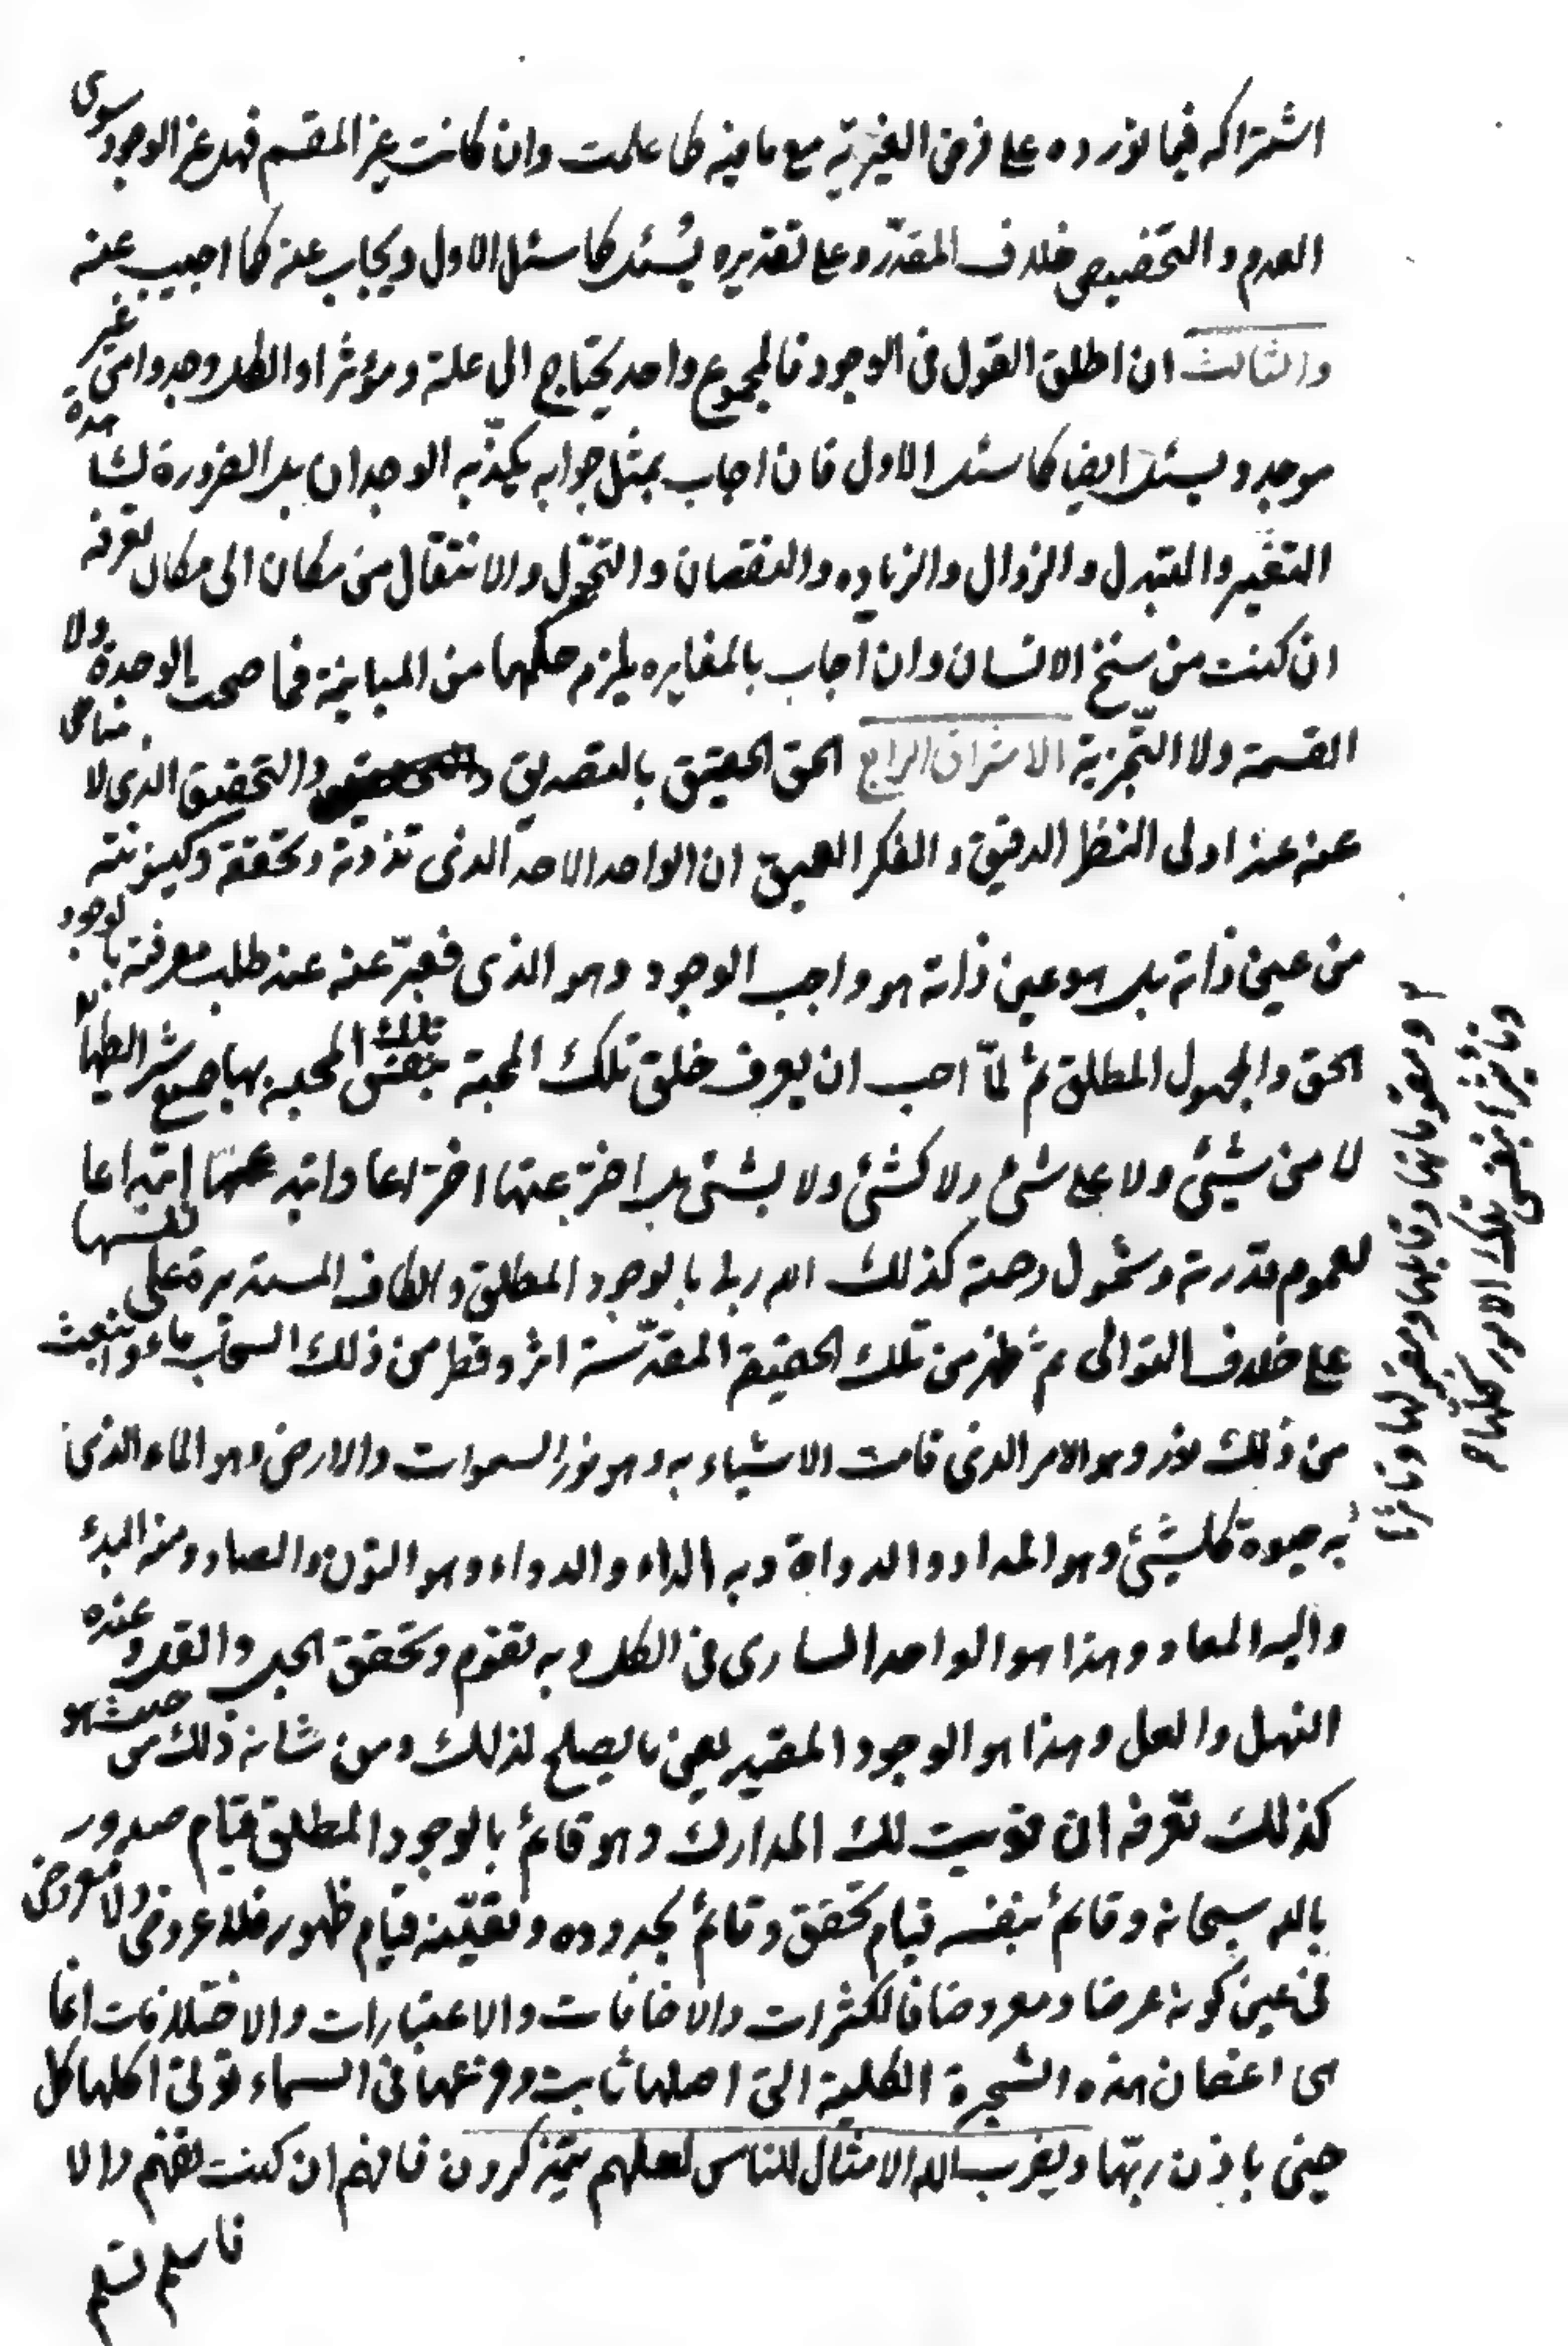 اشتراكه فيما نورده على فرض الغيرية مع ما فيه كما علمت وان كانت غير المقسم فهل غير الوجود سوى
العدم والتخصيص خلاف المقدر وعلى تقديره يسئل كما سئل الاول ويجاب عنه كما اجيب عنه
والثالث ان اطلق القول في الوجود فالمجموع واحد يحتاج الى علة ومؤثر او الكل وجد وا من غير
موجد ويسئل ايضا كما سئل الاول فان اجاب بمثل جوابه يكذبه الوجدان بل الضرورة لمشاهدة
التغير والتبدل والزوال والزياده والنقصان والتحول والانتقال من مكان الى مكان تعرفه
ان كنت من سنخ الانسان وان اجاب بالمغايره يلزم حكمها من المباينة فما صحت الوحدة ولا
القسمة ولا التجزية الاشراق الرابع الحق الحقيق بالتصديق والتحقيق الذي لا مناص
عنه عند اولى النظر الدقيق والفكر العميق ان الواحد الاحد الذى تذوته وتحققه وكينونته
من عين ذاته بل هو عين ذاته هو واجب الوجود وهو الذى فعبر عنه عند طلب معرفته بالوجود
الحق والمجهول المطلق ثم لما احب ان يعرف خلق تلك المحبة بنفس تلك المحبه بها جميع شرايطها
لا من شيئ ولا على شئ ولا كشئ ولا بشئ بل اخترعتها اختراعا وابتدعتها ابتداعا
لعموم قدرته وشمول رحمته كذلك الله ربنا بالوجود المطلق والكاف المستديرة على نفسها
على خلاف التوالى ثم ظهر من تلك الحقيقة المقدسة اثر وقطر من ذلك السحاب ماء وانبعث
من ذلك نور وهو الامر الذى قامت الاشياء به وهو نور السموات والارض وهو الماء الذى
به حيوة كلشيئ وهو المداد والدواة وبه الداء والدواء وهو النون والصاد ومنه البدء
واليه المعاد وهذا هو الواحد السارى في الكل وبه تقوم وتحقق الجل والقل وعنده
النهل والعل وهذا هو الوجود المقيد يعنى ما يصلح لذلك ومن شانه ذلك من حيث هو
كذلك تعرفه ان قويت لك المدارك وهو قائم بالوجود المطلق قيام صدور
بالله سبحانه وقائم بنفسه قيام تحقق وقائم بحدوده وتعينه قيام ظهور فلا عروض ولا معروض
في عين كونه عرضا ومعروضا فالكثرات والاضافات والاعتبارات والاختلافات انما
هى اغصان هذه الشجرة الكلية التى اصلها ثابت وفرعها في السماء تؤتى اكلها كل
حين باذن ربها ويضرب الله الامثال للناس لعلهم يتذكرون فافهم ان كنت تفهم والا
فاسلم تسلم
ومقوماتها وقابلها ومقبولها وفاعلها
وتاثيرا بنفس تلك الامور كلها